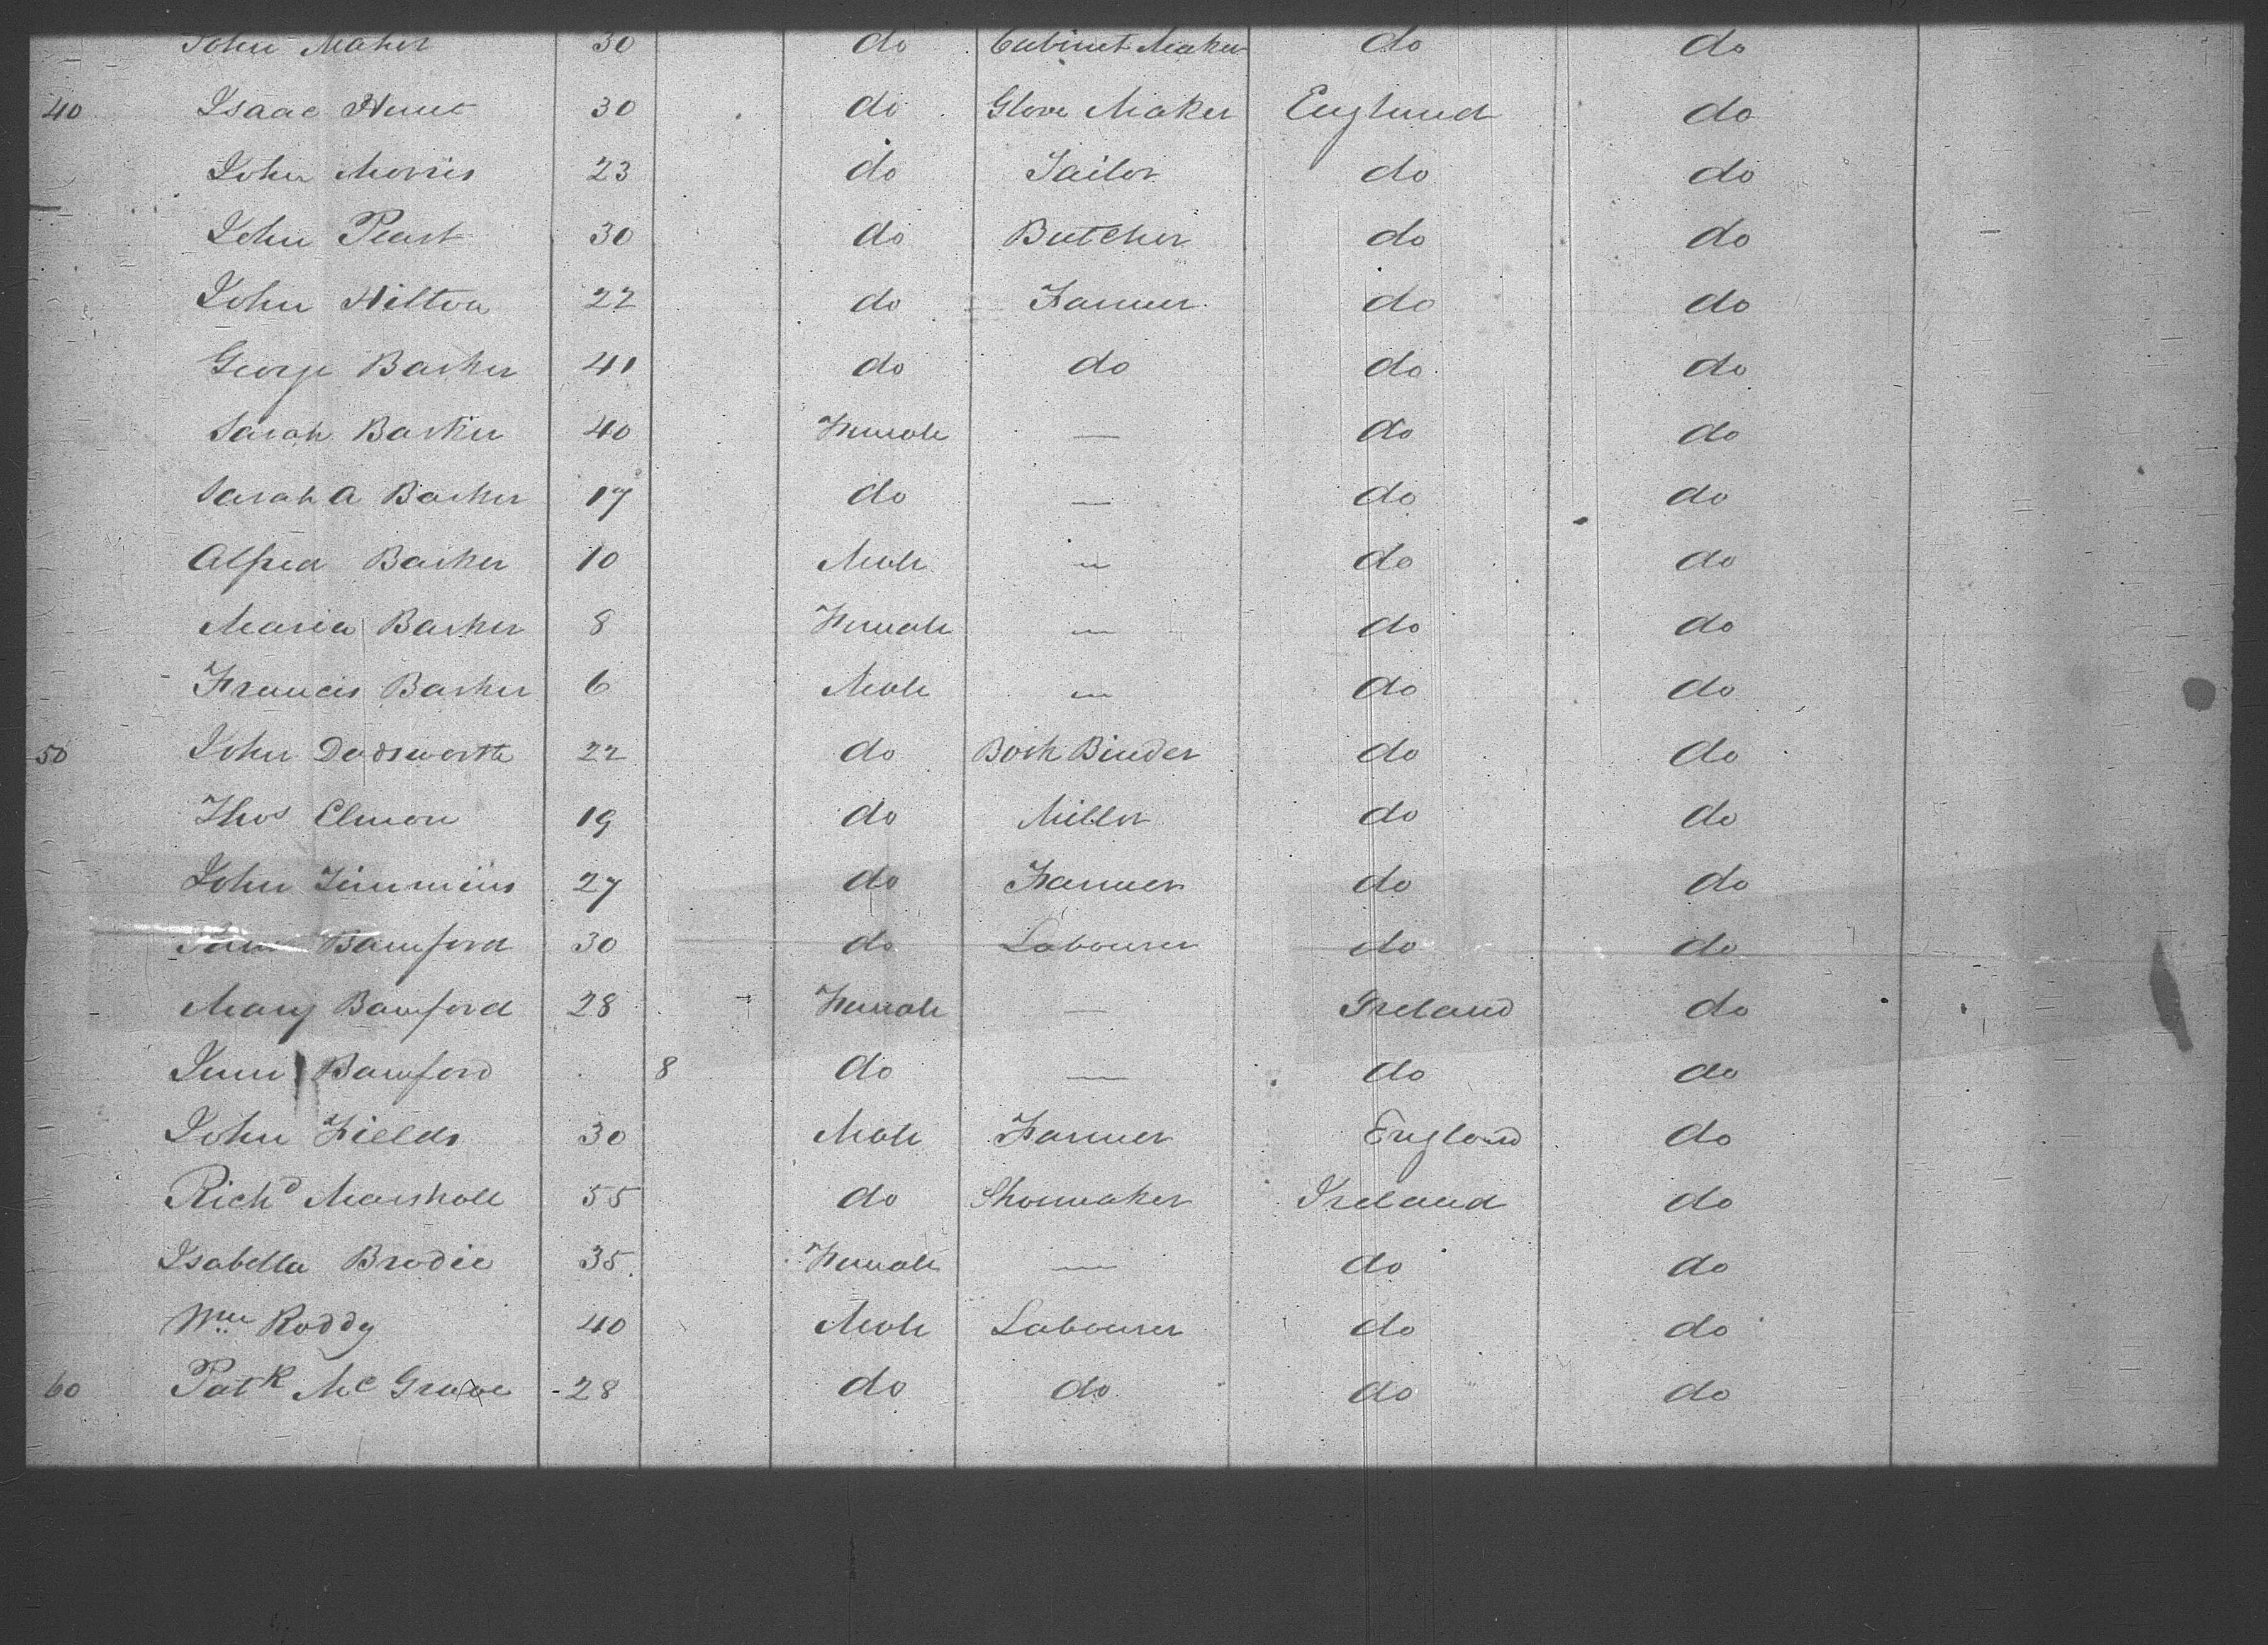 John Maher 30 do Cabinet Maker do do
40 Isaac Hunt 30 do Glove Maker England do
John Morris 23 do Tailor do do
John Peart 30 do Butcher do do
John Hilton 22 do Farmer do do
George Barker 41 do do do do
Sarah Barker 40 Female — do do
Sarah A Barker 17 do — do do
Alfred Barker 10 Male — do do
Maria Barker 8 Female — do do
Francis Barker 6 Male — do do
50 John Dodsworth 22 do Book Binder do do
Thos Elmon 19 do Miller do do
John Timmins 27 do Farmer do do
Bamford 30 do Labourer do do
Mary Bamford 28 Female — Ireland do
Bamford 8 do — do do
John Fields 30 Male Farmer England do
Richd Marshall 55 do Shoemaker Ireland do
Isabella Brodie 35 Female — do do
Wm Roddy 40 Male Labourer do do
60 Patk Mc 28 do do do do